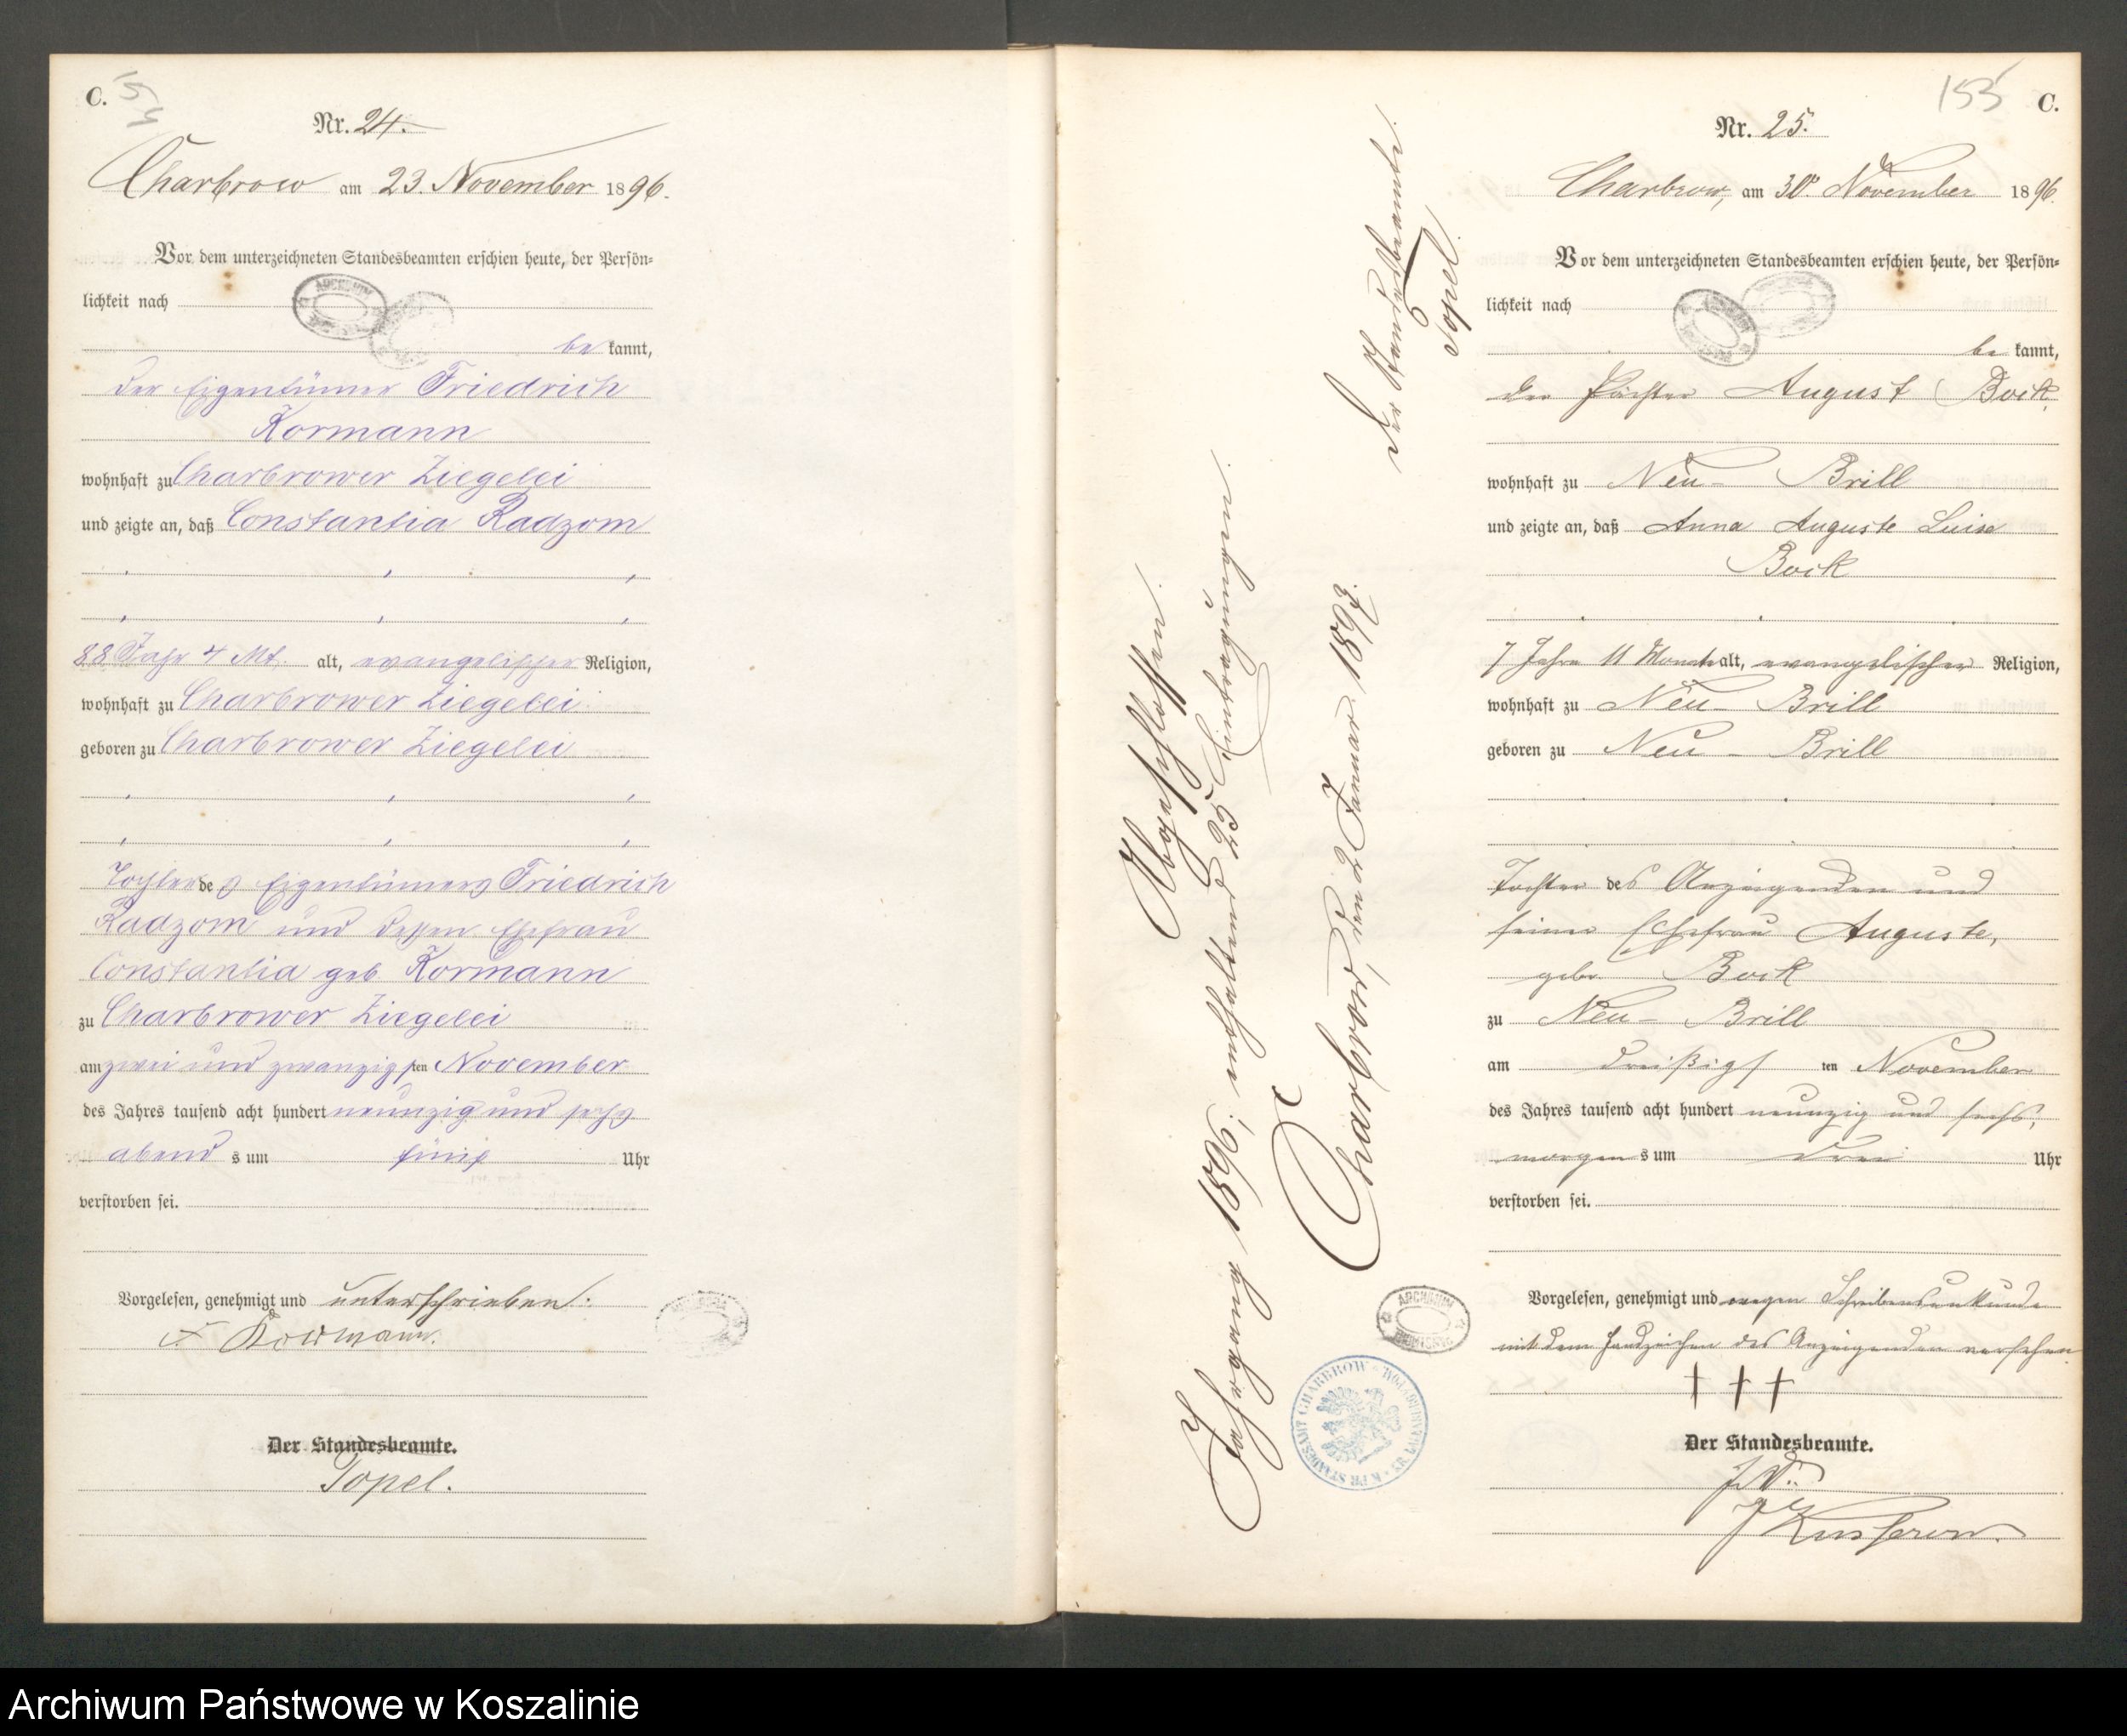 C.
Nr. 24.
Charbrow am 23. November 1896.
Vor dem unterzeichneten Standesbeamten erschien heute, der Persön=
lichkeit nach
be kannt,
der Eigentümer Friedrich
Kormann
wohnhaft zu Charbrower Ziegelei
und zeigte an, daß Constantia Radzom
88 Jahr 4 Mt. alt, evangelischer Religion,
wohnhaft zu Charbrower Ziegelei
geboren zu Charbrower Ziegelei
Tochter des Eigentümers Friedrich
Radzom und dessen Ehefrau
Constantia geb Kormann
zu Charbrower Ziegelei
am zwei und zwanzigsten November
des Jahres tausend acht hundert neunzig und sechs
abend s um fünf Uhr
verstorben sei.
Vorgelesen, genehmigt und unterschrieben:
F. Kormann.
Der Standesbeamte.
Topel.
Abgeschlossen.
Jahrgang 1896, enthaltend 25 Eintragungen.
Charbrow, den 2 Januar 1897.
Der Standesbeamte.
Topel.
ARCHIWUM
STANDESAMT CHARBROW
155 C.
Nr. 25.
Charbrow, am 30. November 1896.
Vor dem unterzeichneten Standesbeamten erschien heute, der Persön=
lichkeit nach
be kannt,
der Pächter August Bock,
wohnhaft zu Neu- Brill
und zeigte an, daß Anna Auguste Luise
Bock
7 Jahre 11 Monate alt, evangelischer Religion,
wohnhaft zu Neu- Brill
geboren zu Neu- Brill
Tochter des Anzeigenden und
seiner Ehefrau Auguste,
gebr Bock
zu Neu- Brill
am dreißigsten November
des Jahres tausend acht hundert neunzig und sechs,
morgen s um drei Uhr
verstorben sei.
Vorgelesen, genehmigt und wegen Schreibensunkunde
mit dem Handzeichen des Anzeigenden versehen
† † †
Der Standesbeamte.
J. V.
Archiwum Państwowe w Koszalinie